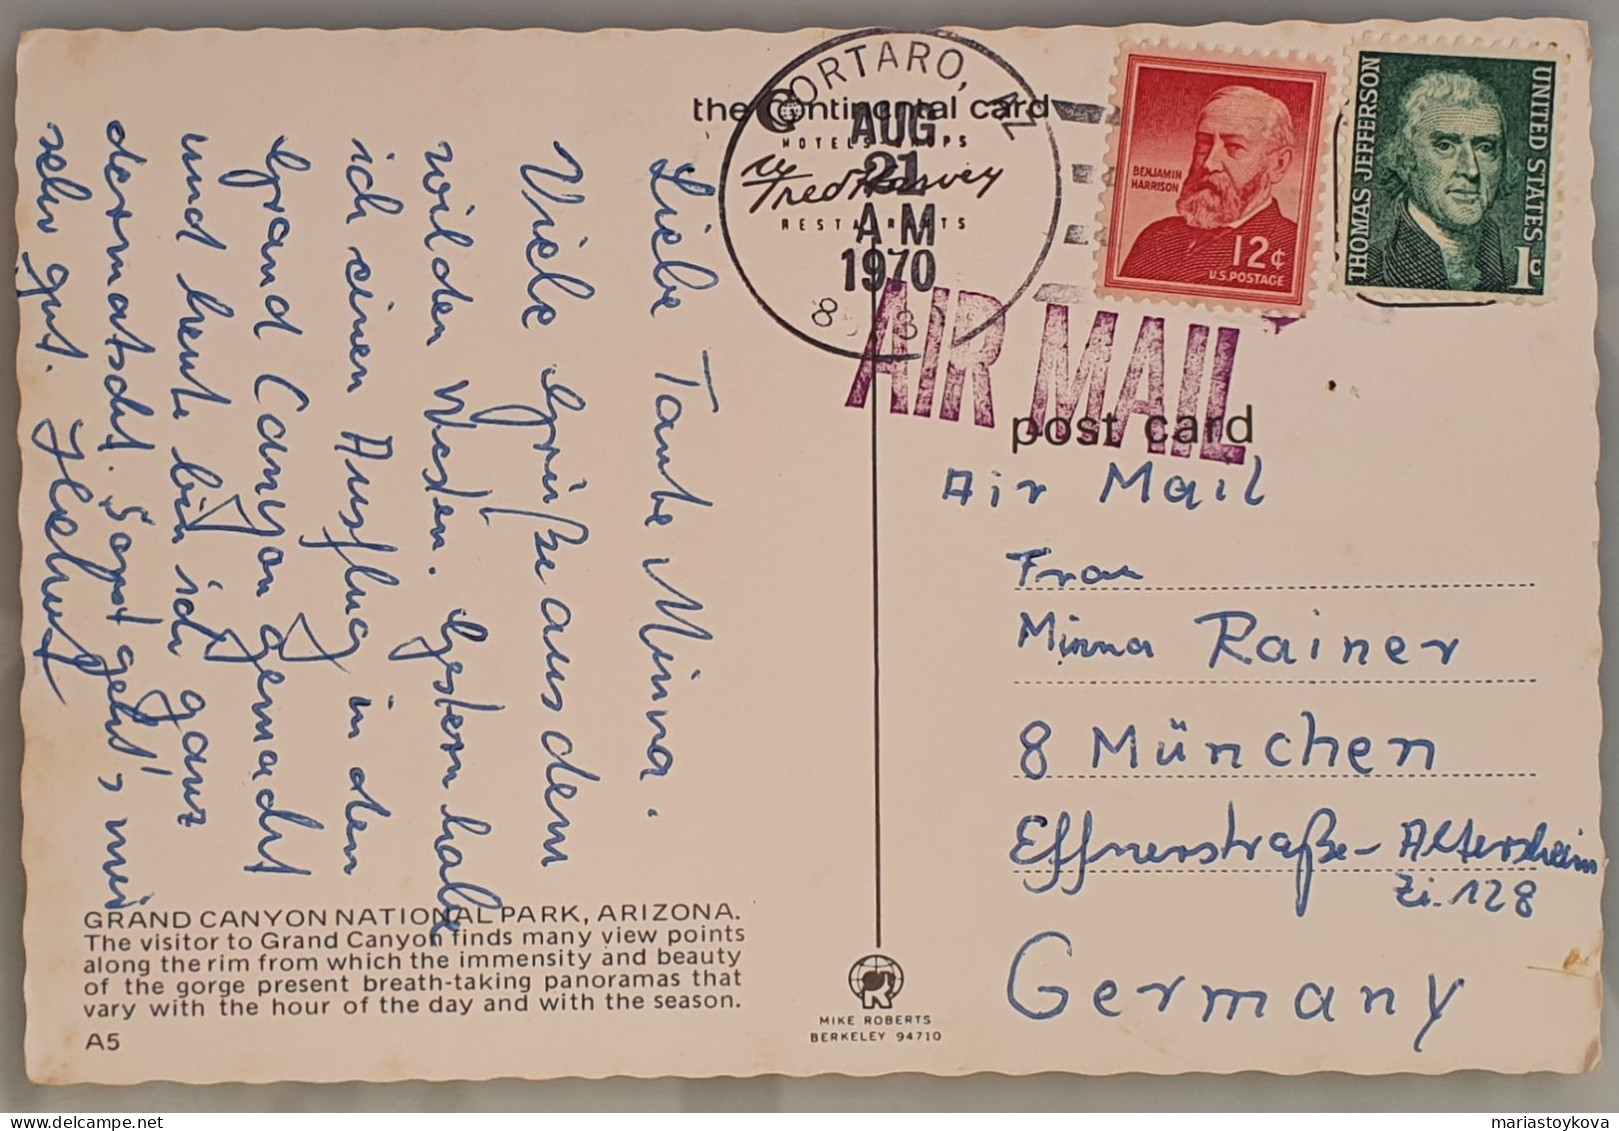 the Continental card
HOTELS SHOPS
Fred Harvey
RESTAURANTS
CORTARO, AZ
AUG
21
AM
1970
AIR MAIL
BENJAMIN
HARRISON
12¢
U.S. POSTAGE
THOMAS JEFFERSON
UNITED STATES
1c
post card
Air Mail
Frau
Minna Rainer
8 München
Effnerstraße - Altersheim
Zi. 128
Germany
Liebe Tante Minna.
Viele Grüße aus dem
wilden Westen. Gestern habe
ich einen Ausflug in den
Grand Canyon gemacht
und heute bin ich ganz
dermatscht. Sonst geht's mir
sehr gut.
GRAND CANYON NATIONAL PARK, ARIZONA.
The visitor to Grand Canyon finds many view points
along the rim from which the immensity and beauty
of the gorge present breath-taking panoramas that
vary with the hour of the day and with the season.
A5
MIKE ROBERTS
BERKELEY 94710
mariastoykova